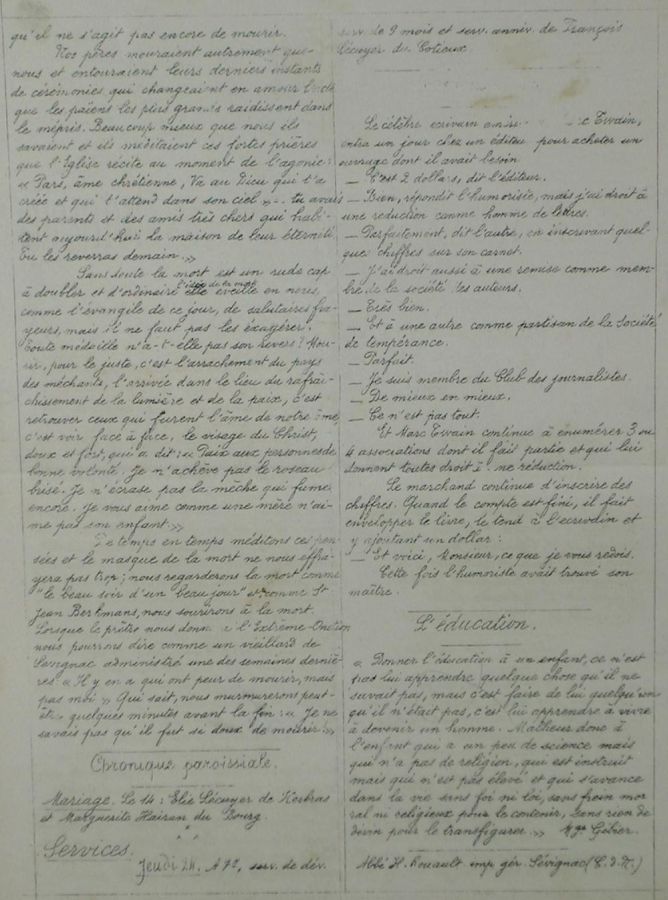 qu'il ne s'agit pas encore de mourir.
Nos pères mouraient autrement que
nous et entouraient leurs derniers instants
de cérémonies qui changeaient en amour l'acte
que les païens les plus grands raidissent dans
le mépris. Beaucoup mieux que nous ils
savaient et ils méditaient ces fortes prières
que l'Eglise récite au moment de l'agonie :
« Pars, âme chrétienne, Va au Dieu qui t'a
créée et qui t'attend dans son ciel »... tu avais
des parents et des amis très chers qui habi-
tent aujourd'hui la maison de leur éternité
Tu les reverras demain. »
Sans doute la mort est un rude cap
à doubler et d'ordinaire l'idée de la mort éveille en nous,
comme l'évangile de ce jour, de salutaires fra-
yeurs, mais il ne faut pas les exagérer.
Toute médaille n'a-t-elle pas son revers ? Mou-
rir, pour le juste, c'est l'arrachement du pays
des méchants, l'arrivée dans le lieu du rafraî-
chissement de la lumière et de la paix, c'est
retrouver ceux qui furent l'âme de notre âme,
c'est voir face à face, le visage du Christ,
doux et fort, qui a dit : « Paix aux personnes de
bonne volonté. Je n'achève pas le roseau
brisé. Je n'écrase pas la mèche qui fume
encore. Je vous aime comme une mère n'ai-
me pas son enfant. »
De temps en temps méditons ces pen-
sées et le masque de la mort ne nous effra-
yera pas trop ; nous regarderons la mort comme
"le beau soir d'un beau jour" et comme St
Jean Berkmans, nous sourirons à la mort.
Lorsque le prêtre nous donn l'Extrème-Onction
nous pourrons dire comme un vieillard de
Sévignac administré une des semaines derniè-
res « Il y en a qui ont peur de mourir, mais
pas moi » Qui sait, nous murmurerons peut-
être quelques minutes avant la fin : « Je ne
savais pas qu'il fût si doux de mourir ! »
Chronique paroissiale.
Mariage. Le 14 : Elie Lécuyer de Kerbras
et Marguerite Hairan du Bourg.
Services.
Jeudi 24. A 7 h, serv. de dév.
serv. de 9 mois et serv. anniv. de François
Lécuyer du Cotieux
Le célèbre écrivain Twain,
entra un jour chez un éditeu pour acheter un
ouvrage dont il avait besoin
— C'est 2 dollars, dit l'éditeur.
— Bien, répondit l'humoriste, mais j'ai droit à
une réduction comme homme de lettres.
— Parfaitement, dit l'autre, en inscrivant quel-
ques chiffres sur son carnet.
— J'ai droit aussi à une remise comme mem-
bre de la société des auteurs.
— Très bien.
— Et à une autre comme partisan de la Société
de tempérance.
— Parfait.
— Je suis membre du Club des journalistes.
— De mieux en mieux.
— Ce n'est pas tout.
Et Marc Twain continue à énumérer 3 ou
4 associations dont il fait partie et qui lui
donnent toutes droit à ne réduction.
Le marchand continue d'inscrire des
chiffres. Quand le compte est fini, il fait
envelopper le livre, le tend à l'écrivain et
y ajoutant un dollar :
— Et voici, Monsieur, ce que je vous redois.
Cette fois l'humoriste avait trouvé son
maître.
L'éducation.
« Donner l'éducation à un enfant, ce n'est
pas lui apprendre quelque chose qu'il ne
savait pas, mais c'est faire de lui quelqu'un
qu'il n'était pas, c'est lui apprendre à vivre
à devenir un homme. Malheur donc à
l'enfant qui a un peu de science mais
qui n'a pas de religion, qui est instruit
mais qui n'est pas élevé et qui s'avance
dans la vie sans foi ni loi, sans frein mo-
ral ni religieux pour le contenir, sans rien de
divin pour le transfigurer. » Mgr Gibier.
Abbé H. Rouault imp. gér. Sévignac (C. d. N.)